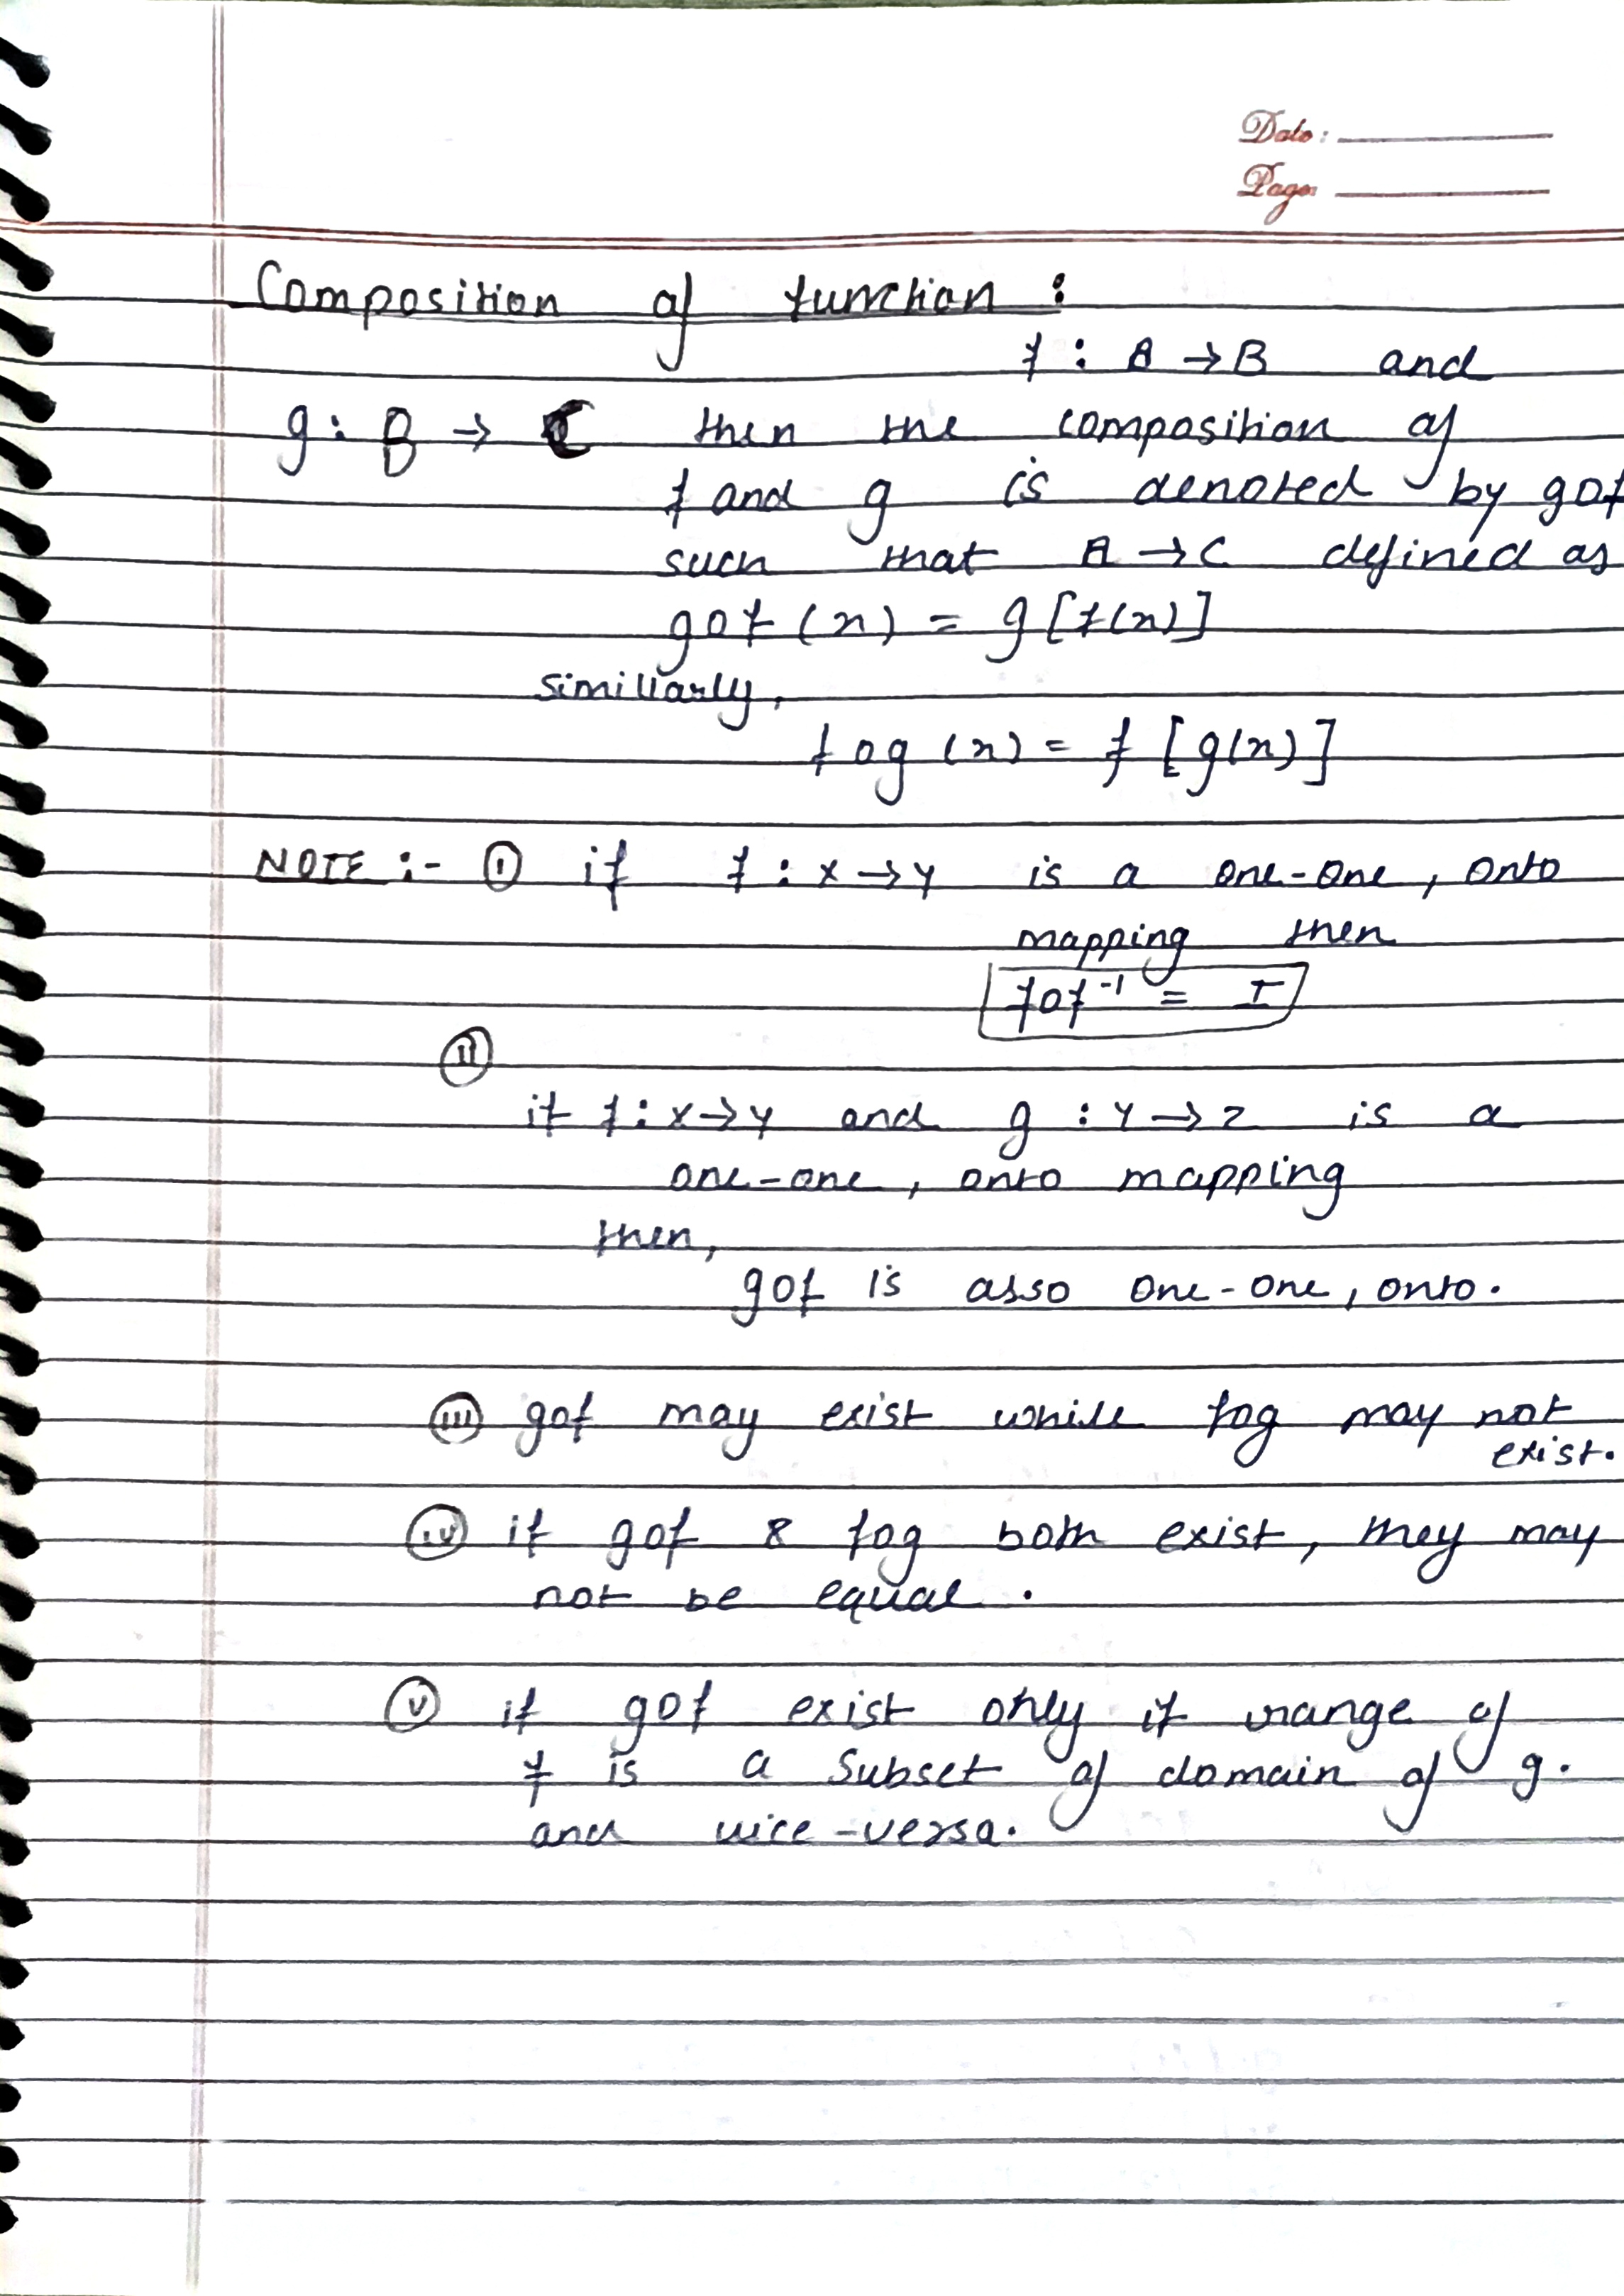 Date:
Page:
Composition of function :
f : A → B and
g : B → C then the composition of
f and g is denoted by gof
such that A → C defined as
gof (x) = g [f(x)]
similiarly,
fog (x) = f [g(x)]
NOTE :- (i) if f : x → y is a one-one, onto
mapping then
fof⁻¹ = I
(ii)
if f : x → y and g : y → z is a
one-one, onto mapping
then,
gof is also one-one, onto.
(iii) gof may exist while fog may not
exist.
(iv) if gof & fog both exist, they may
not be equal.
(v) if gof exist only if range of
f is a subset of domain of g.
and vice-versa.